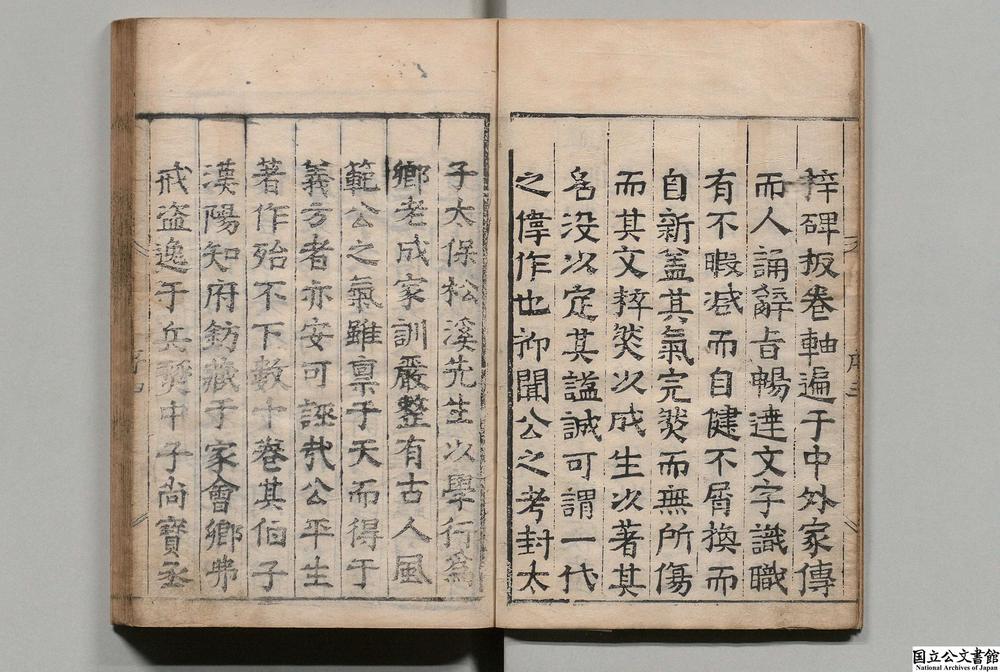 梓碑扳卷軸遍于中外家傳
而人誦辭旨暢達文字識職
有不暇減而自健不屑換而
自新盖其氣完㷋而無所傷
而其文粹㷋以成生以著其
名没以定其謚誠可謂一代
之偉作也抑聞公之考封太
子太保松溪先生以學行為
鄉老成家訓嚴整有古人風
範公之氣雖禀于天而得于
義方者亦安可誣㢤公平生
著作殆不下数十卷其伯子
漢陽知府鈁藏于家會鄉弗
戒盗逸于兵㷼中子尚寶丞
国立公文書館
National Archives of Japan